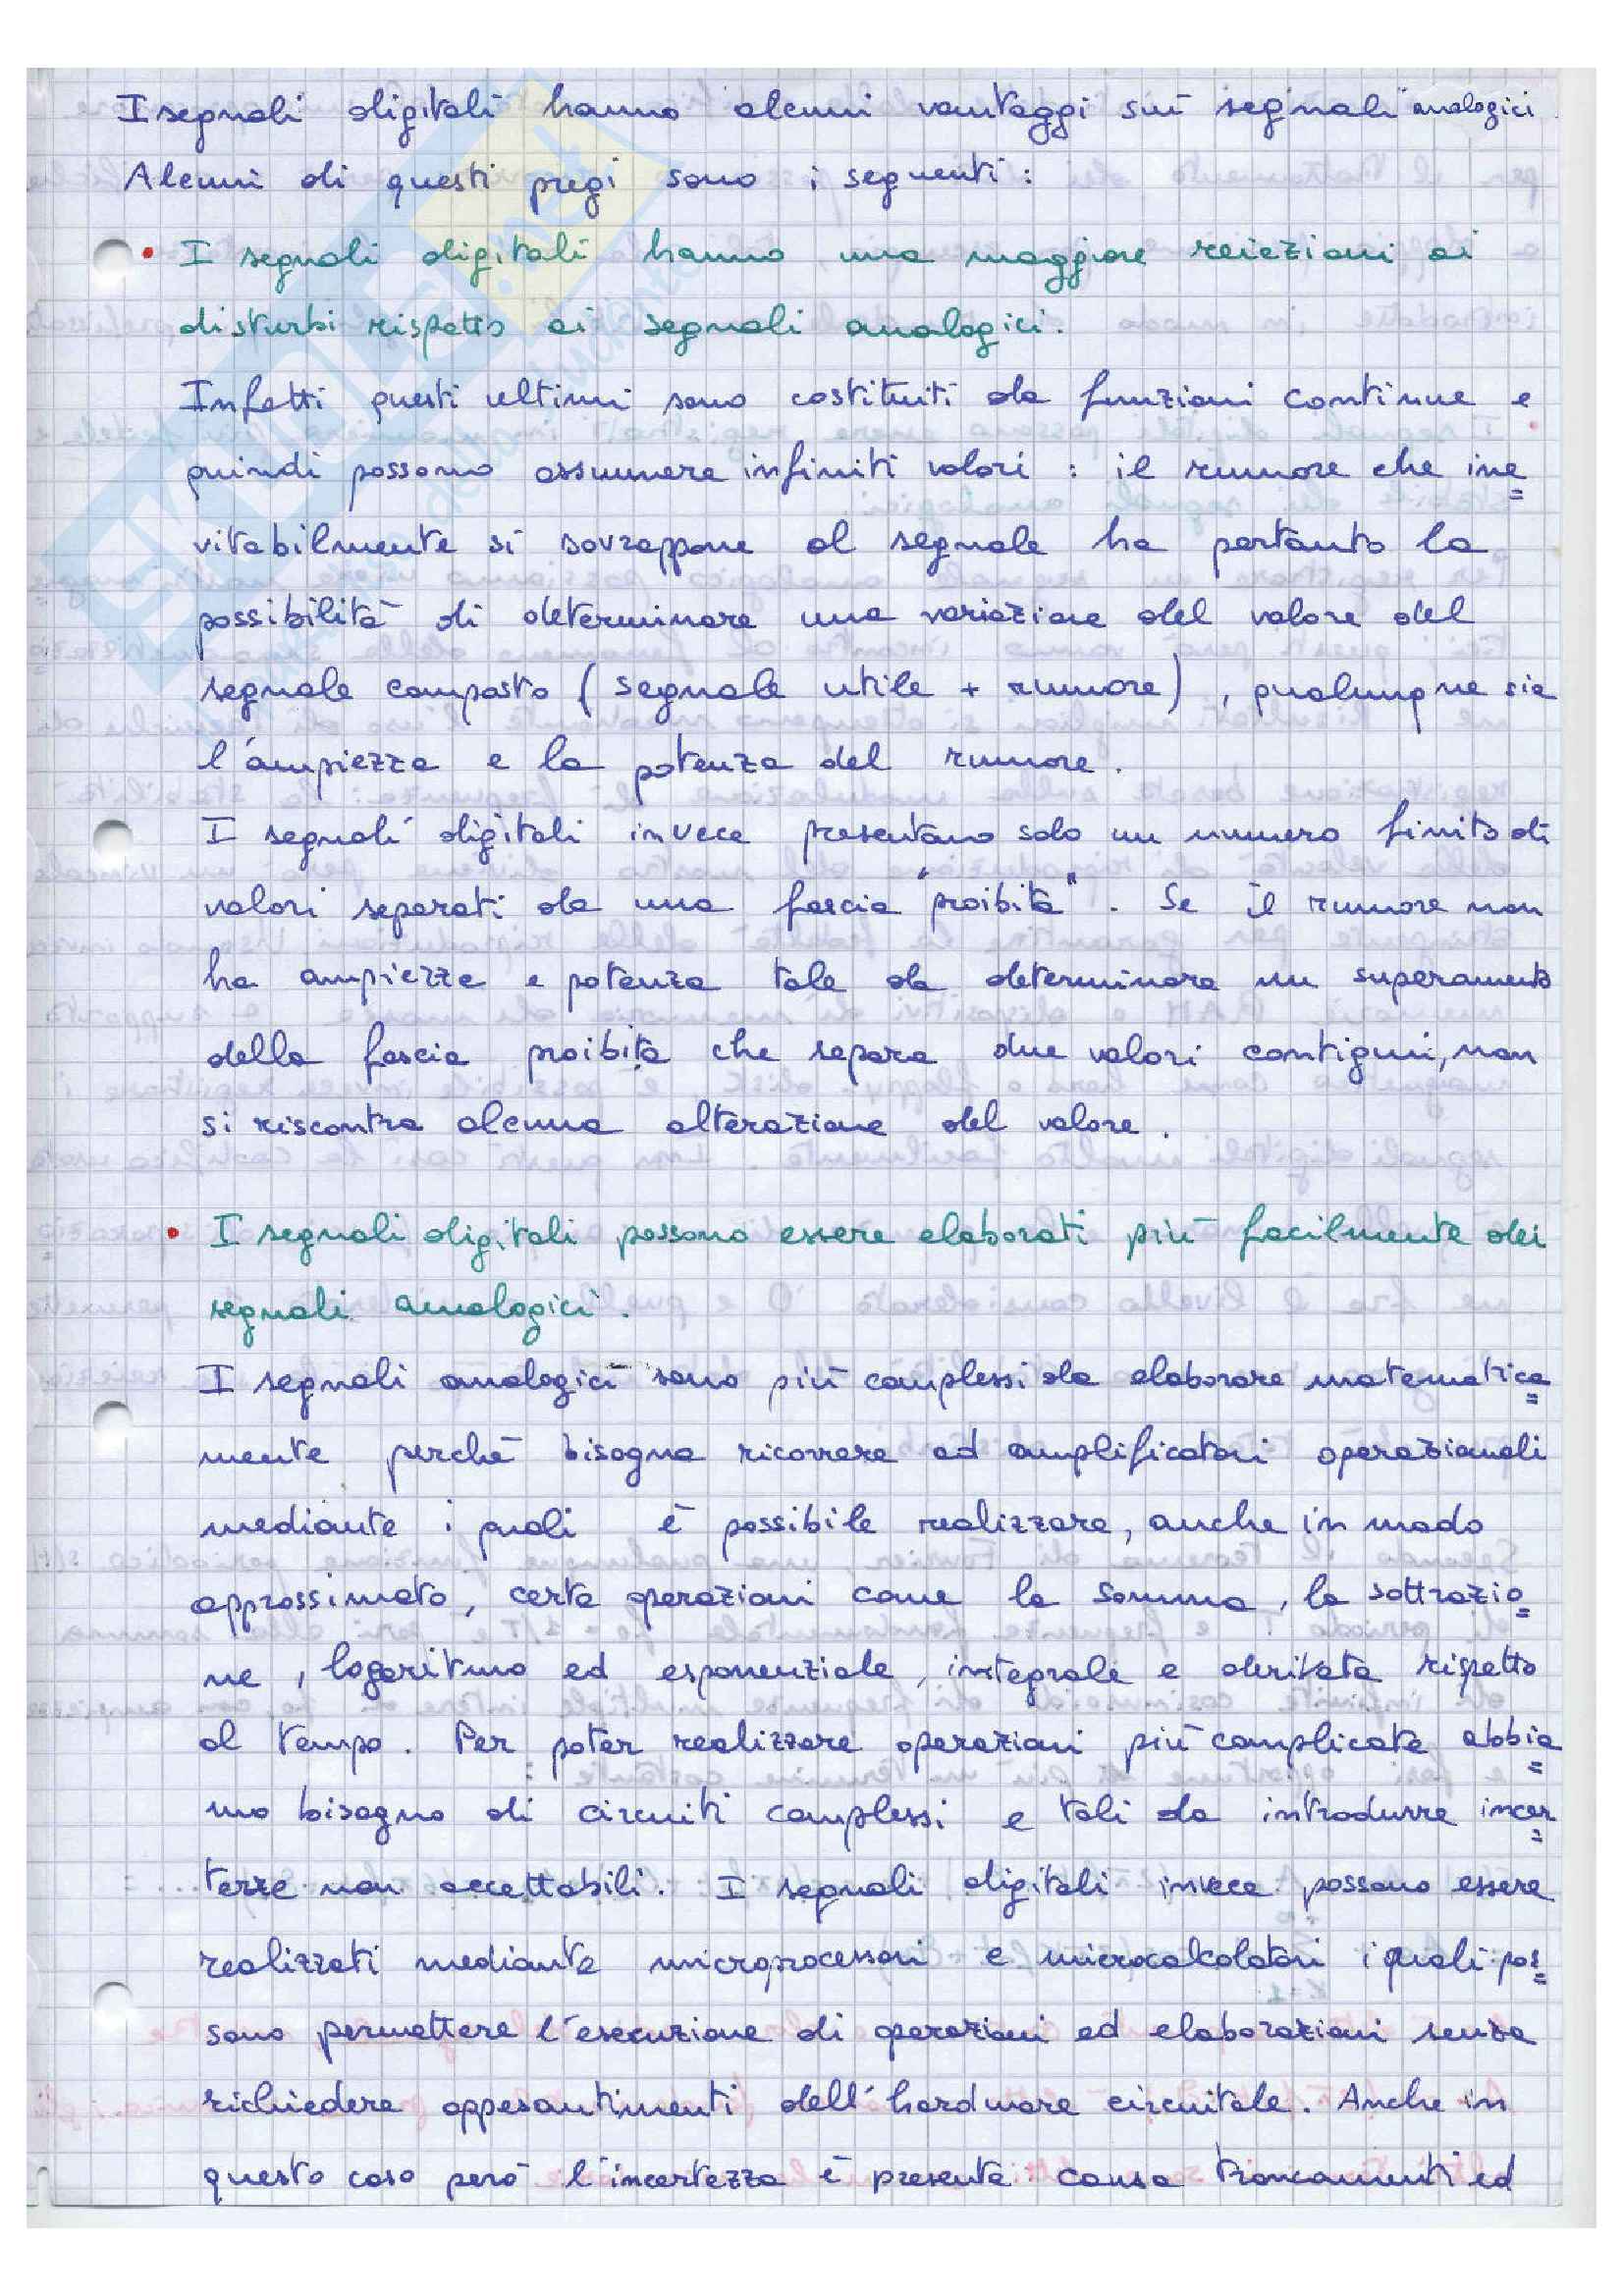 I segnali digitali hanno alcuni vantaggi sui segnali analogici.
Alcuni di questi pregi sono i seguenti:
• I segnali digitali hanno una maggiore reiezioni ai
disturbi rispetto ai segnali analogici.
Infatti questi ultimi sono costituiti da funzioni continue e
quindi possono assumere infiniti valori: il rumore che ine=
vitabilmente si sovrappone al segnale ha pertanto la
possibilità di determinare una variazione del valore del
segnale composto (segnale utile + rumore), qualunque sia
l'ampiezza e la potenza del rumore.
I segnali digitali invece presentano solo un numero finito di
valori separati da una fascia "proibita". Se il rumore non
ha ampiezza e potenza tale da determinare un superamento
della fascia proibita che separa due valori contigui, non
si riscontra alcuna alterazione del valore.
• I segnali digitali possono essere elaborati più facilmente dei
segnali analogici.
I segnali analogici sono più complessi da elaborare matematica=
mente perchè bisogna ricorrere ad amplificatori operazionali
mediante i quali è possibile realizzare, anche in modo
approssimato, certe operazioni come la somma, la sottrazio=
ne, logaritmo ed esponenziale, integrale e derivata rispetto
al tempo. Per poter realizzare operazioni più complicate abbia=
mo bisogno di circuiti complessi e tali da introdurre incer=
tezze non accettabili. I segnali digitali invece possono essere
realizzati mediante microprocessori e microcalcolatori i quali pos=
sono permettere l'esecuzione di operazioni ed elaborazioni senza
richiedere appesantimenti dell'hardware circuitale. Anche in
questo caso però l'incertezza è presente causa troncamenti ed